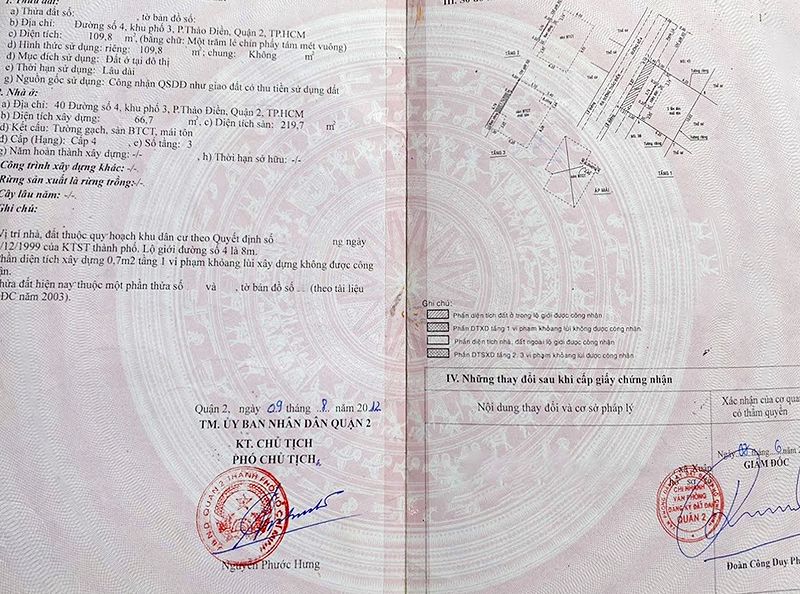 1. Thửa đất:
a) Thửa đất số: , tờ bản đồ số:
b) Địa chỉ: Đường số 4, khu phố 3, P.Thảo Điền, Quận 2, TP.HCM
c) Diện tích: 109,8 m², (bằng chữ: Một trăm lẻ chín phẩy tám mét vuông)
d) Hình thức sử dụng: riêng: 109,8 m²; chung: Không m²
đ) Mục đích sử dụng: Đất ở tại đô thị
e) Thời hạn sử dụng: Lâu dài
g) Nguồn gốc sử dụng: Công nhận QSDĐ như giao đất có thu tiền sử dụng đất
2. Nhà ở:
a) Địa chỉ: 40 Đường số 4, khu phố 3, P.Thảo Điền, Quận 2, TP.HCM
b) Diện tích xây dựng: 66,7 m², c) Diện tích sàn: 219,7 m²
d) Kết cấu: Tường gạch, sàn BTCT, mái tôn
đ) Cấp (Hạng): Cấp 4 , e) Số tầng: 3
g) Năm hoàn thành xây dựng: -/- , h) Thời hạn sở hữu: -/-
Công trình xây dựng khác: -/-
Rừng sản xuất là rừng trồng:-/-
Cây lâu năm: -/-
Ghi chú:
Vị trí nhà, đất thuộc quy hoạch khu dân cư theo Quyết định số ng ngày
/12/1999 của KTST thành phố. Lộ giới đường số 4 là 8m.
Phần diện tích xây dựng 0,7m2 tầng 1 vi phạm khoảng lùi xây dựng không được công
nhận.
Thửa đất hiện nay thuộc một phần thửa số và , tờ bản đồ số (theo tài liệu
ĐC năm 2003).
Quận 2, ngày 09 tháng 8 năm 2012
TM. ỦY BAN NHÂN DÂN QUẬN 2
KT. CHỦ TỊCH
PHÓ CHỦ TỊCH
U.B.N.D QUẬN 2 THÀNH PHỐ HỒ CHÍ MINH
Nguyễn Phước Hưng
TẦNG 2
TẦNG 3
TẦNG 1
ÁP MÁI
Ghi chú:
Phần diện tích đất ở trong lộ giới được công nhận
Phần DTXD tầng 1 vi phạm khoảng lùi không được công nhận.
Phần diện tích nhà, đất ngoài lộ giới được công nhận
Phần DTSXD tầng 2, 3 vi phạm khoảng lùi được công nhận
IV. Những thay đổi sau khi cấp giấy chứng nhận
Nội dung thay đổi và cơ sở pháp lý
Xác nhận của cơ quan
có thẩm quyền
Ngày 03 tháng 6
GIÁM ĐỐC
CHI NHÁNH
VĂN PHÒNG
ĐĂNG KÝ ĐẤT ĐAI
QUẬN 2
Đoàn Công Duy Ph